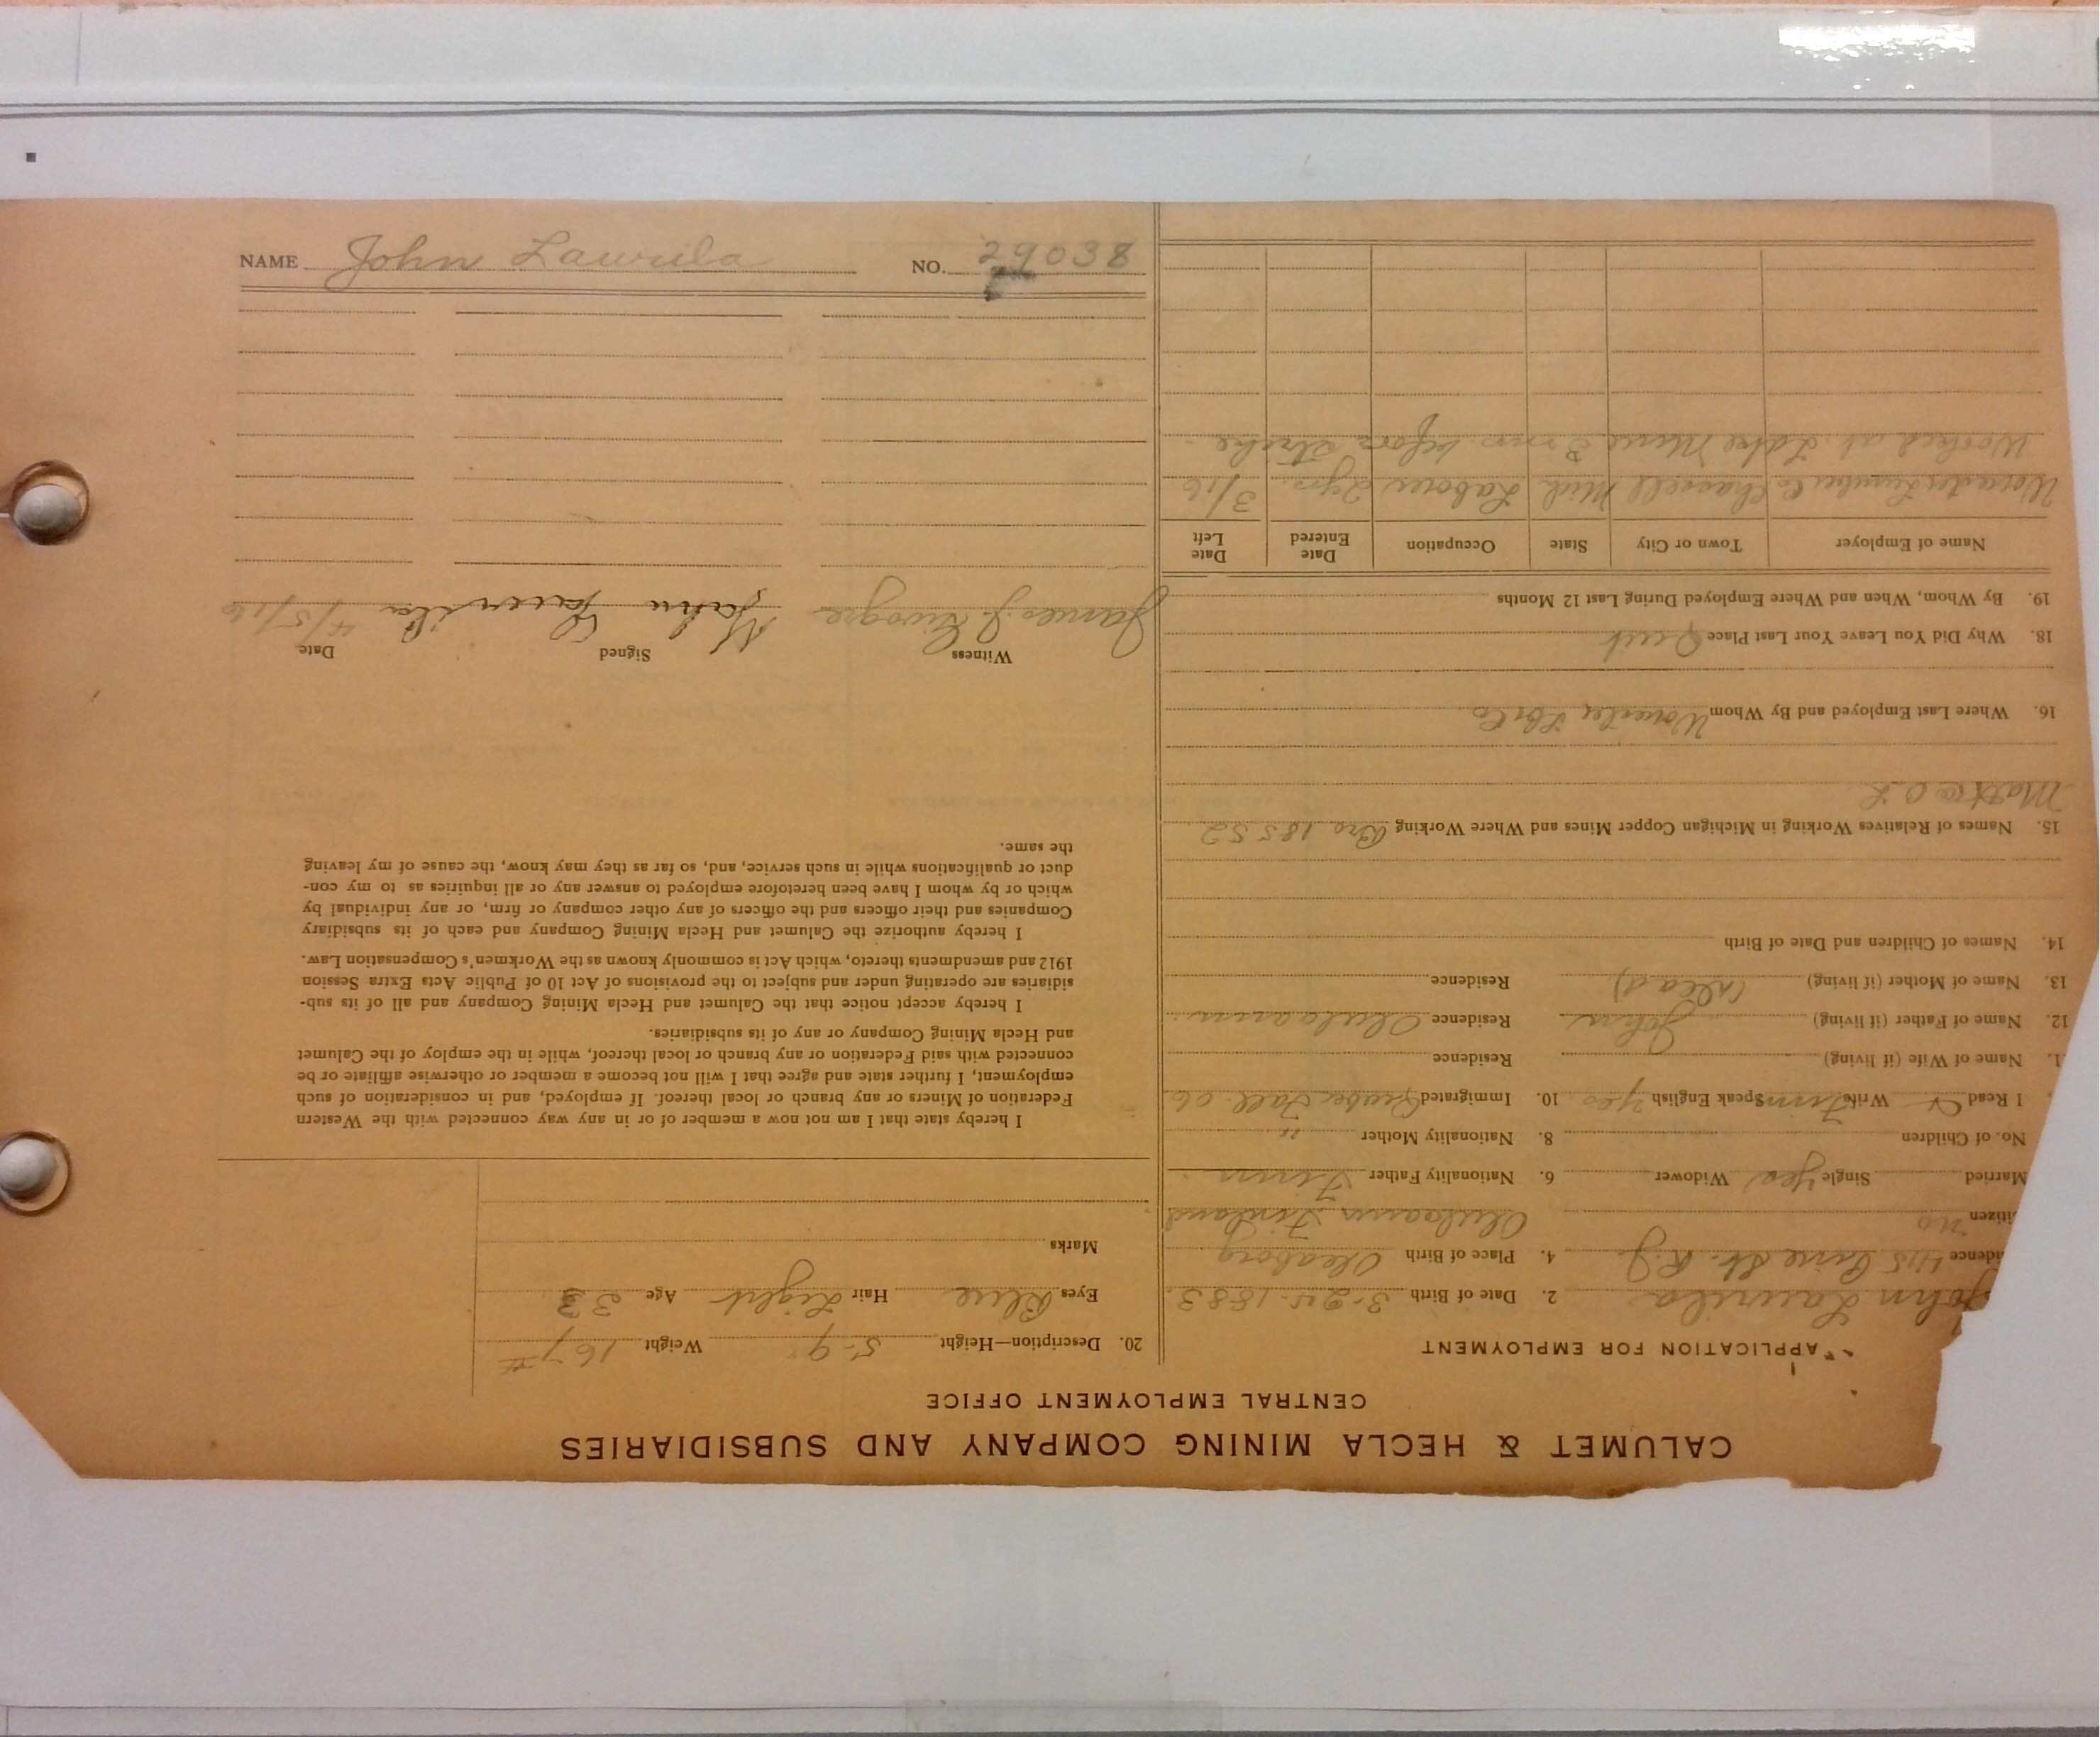 NAME John Laurila NO. 29038
CALUMET & HECLA MINING COMPANY AND SUBSIDIARIES
CENTRAL EMPLOYMENT OFFICE
APPLICATION FOR EMPLOYMENT
John Laurila 2. Date of Birth 3-24-1883
idence 415 Pine St. R.J. 4. Place of Birth Oleaborg
itizen no Oulaann Finland
Married Single yes Widower 6. Nationality Father Finn
No. of Children 8. Nationality Mother "
I Read Write Finn Speak English yes 10. Immigrated Quebec Fall 06
1. Name of Wife (if living) Residence
12. Name of Father (if living) John Residence
13. Name of Mother (if living) (dead) Residence
14. Names of Children and Date of Birth
15. Names of Relatives Working in Michigan Copper Mines and Where Working Bro 18552
Matt O L
16. Where Last Employed and By Whom Worcester Lbr Co.
18. Why Did You Leave Your Last Place Quit
19. By Whom, When and Where Employed During Last 12 Months
Name of Employer Town or City State Occupation Date Entered Date Left
Worcester Lumber Co Chassell Mich Laborer 2 yrs. 3/16
Worked at Lake Mine 3 mos. before strike
20. Description—Height 5-9 Weight 167
Eyes Blue Hair Light Age 33
Marks
I hereby state that I am not now a member of or in any way connected with the Western
Federation of Miners or any branch or local thereof. If employed, and in consideration of such
employment, I further state and agree that I will not become a member or otherwise affiliate or be
connected with said Federation or any branch or local thereof, while in the employ of the Calumet
and Hecla Mining Company or any of its subsidiaries.
I hereby accept notice that the Calumet and Hecla Mining Company and all of its sub-
sidiaries are operating under and subject to the provisions of Act 10 of Public Acts Extra Session
1912 and amendments thereto, which Act is commonly known as the Workmen's Compensation Law.
I hereby authorize the Calumet and Hecla Mining Company and each of its subsidiary
Companies and their officers and the officers of any other company or firm, or any individual by
which or by whom I have been heretofore employed to answer any or all inquiries as to my con-
duct or qualifications while in such service, and, so far as they may know, the cause of my leaving
the same.
Witness Signed Date
James J. John Laurila 4/5/16